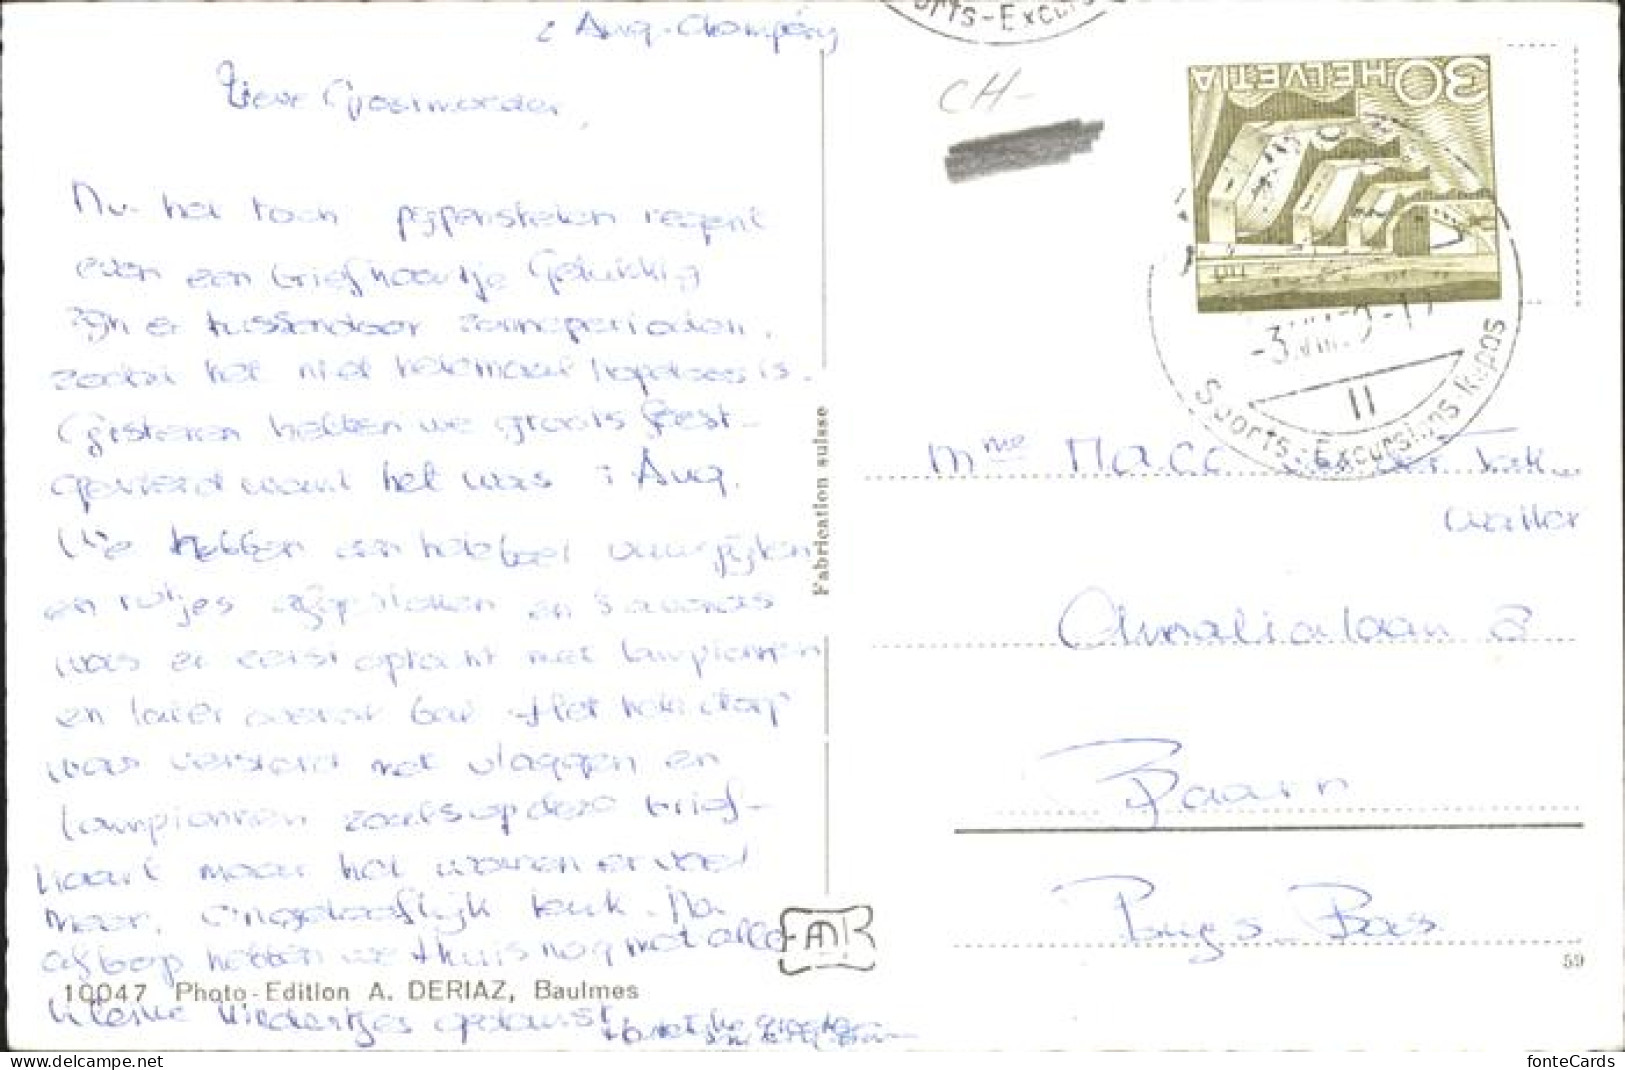 2 Aug. Champéry
Lieve Grootmoeder,
Nu het toch pijpenstelen regent
even een briefkaartje Gelukkig
zijn er tussendoor zonneperioden,
zodat het niet helemaal hopeloos is.
Gisteren hebben we groots feest-
gevierd want het was 1 Aug.
We hebben een heleboel vuurpijlen
en rotjes afgestoken en s'avonds
was er eerst optocht met lampionnen
en later overal bal. Het hele dorp
was versierd met vlaggen en
lampionnen zoals op deze brief-
kaart maar het waren er veel
meer, ongelooflijk leuk. Na
afloop hebben we thuis nog met alle
kleine kindertjes gedanst.
10047 Photo-Edition A. DERIAZ, Baulmes
Fabrication suisse
EADR
CH-
30 HELVETIA
-3.VIII.
11
Sports-Excursions Repos
Sports-Excurs
Mme
waller
Amalialaan 8
Baarn
Pays-Bas
59
fonteCards